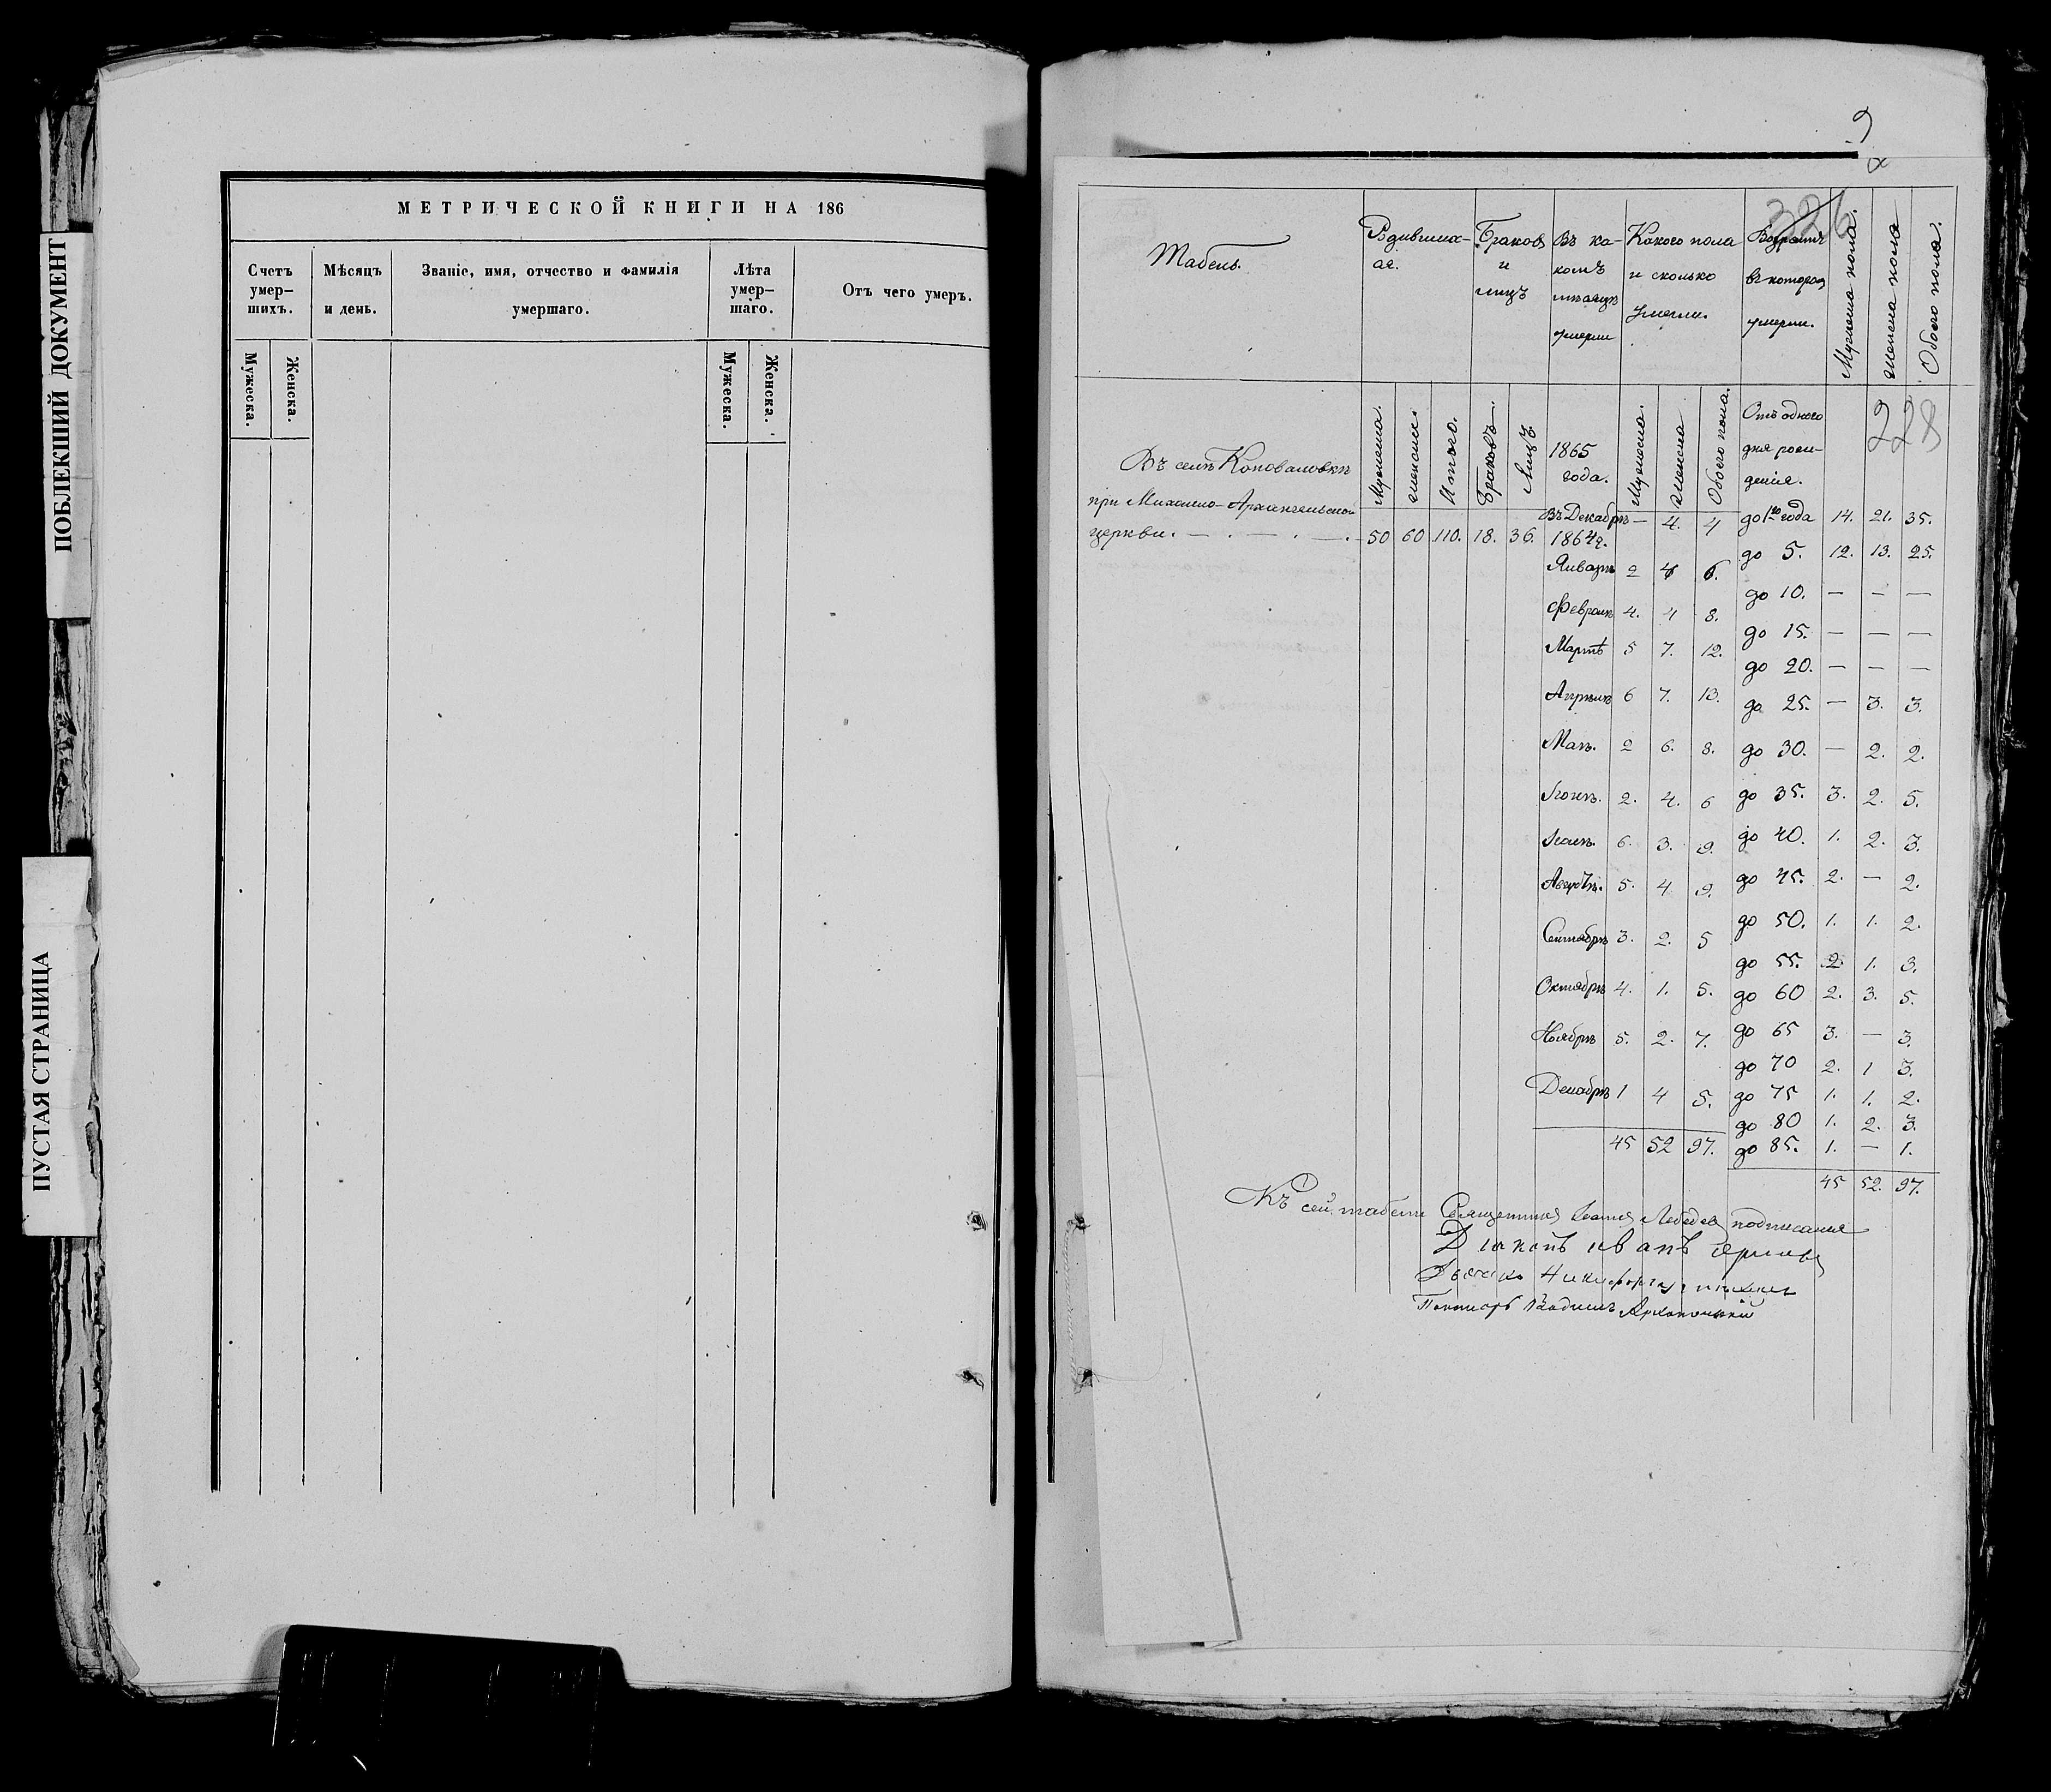 ПОБЛЕКШИЙ ДОКУМЕНТ
ПУСТАЯ СТРАНИЦА
МЕТРИЧЕСКОЙ КНИГИ НА 186
Счетъ умер— шихъ.
Мѣсяцъ и день.
Званіе, имя, отчество и фамилія умершаго.
Лѣта умер— шаго.
Отъ чего умеръ.
Мужеска.
Женска.
Мужеска.
Женска.
326
Табель.
Родивших- ся.
Браковъ и лицъ
Въ ка- комъ мѣсяцѣ умерли
Какого пола и сколько умерли.
Возрастъ въ котором умерли.
Мужеска пола.
женска пола
Обоего пола.
228
Мужеска.
женска.
Итого.
Браковъ.
Лицъ
1865 года.
Мужеска.
женска
Обоего пола.
Отъ одного дня рож- денія.
Въ селѣ Коноваловкѣ
при Михаило-Архангельской
церкви. — . — . — . 50 60 110. 18. 36.
Въ Декабрѣ 1864 г. — 4. 4
Январѣ 2 4 6.
Февралѣ 4. 4 8.
Мартѣ 5 7. 12.
Апрѣлѣ 6 7. 13.
Маѣ. 2 6. 8.
Іюнѣ. 2. 4. 6
Іюлѣ. 6. 3. 9.
Августѣ. 5. 4 9.
Сентябрѣ 3. 2. 5
Октябрѣ 4. 1. 5.
Ноябрѣ 5. 2. 7.
Декабрѣ 1 4 5.
45 52 97.
до 1го года 14. 21. 35.
до 5. 12. 13. 25.
до 10. — — —
до 15. — — —
до 20. — — —
до 25. — 3. 3.
до 30. — 2. 2.
до 35. 3. 2. 5.
до 40. 1. 2. 3.
до 45. 2. — 2.
до 50. 1. 1. 2.
до 55. 2. 1. 3.
до 60 2. 3. 5.
до 65 3. — 3.
до 70 2. 1 3.
до 75 1. 1. 2.
до 80 1. 2. 3.
до 85. 1. — 1.
45 52. 97.
Къ сей табели Священникъ Іоаннъ Лебедевъ подписался
Діаконъ иванъ
Пономарь